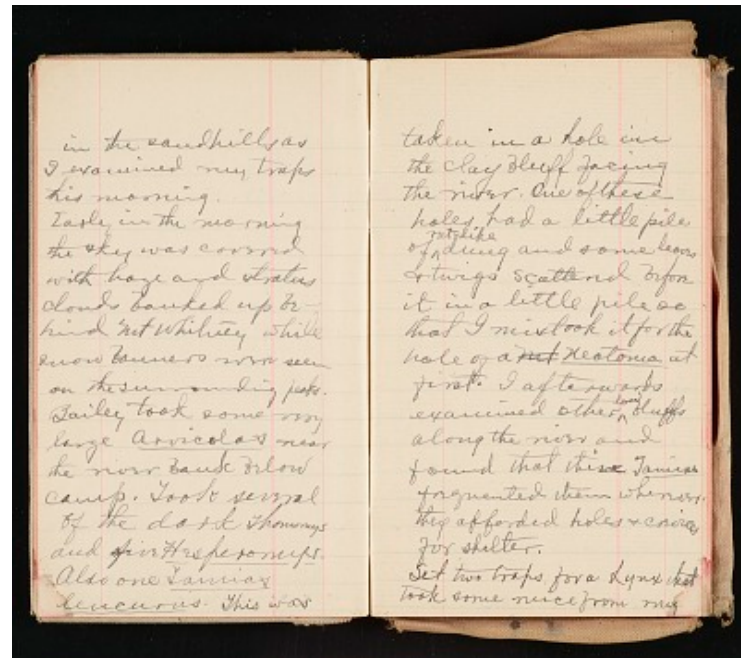 in the sandhills as
I examined my traps
this morning.
Early in the morning
the sky was covered
with haze and stratus
clouds banked up be-
hind Mt Whitney while
snow banners were seen
on the surrounding peaks.
Bailey took some very
large Arvicolas near
the river bank below
camp. Took several
of the dark Thomomys
and five Hesperomys.
Also one Tamias
leucurus. This was
taken in a hole in
the clay bluff facing
the river. One of these
holes had a little pile
of rat-like dung and some leaves
& twigs scattered before
it in a little pile so
that I mistook it for the
hole of a Neotoma at
first. I afterwards
examined other bluffs
along the river and
found that these Tamias
frequented them whenever
they afforded holes & crevices
for shelter.
Set two traps for a Lynx that
took some mice from my